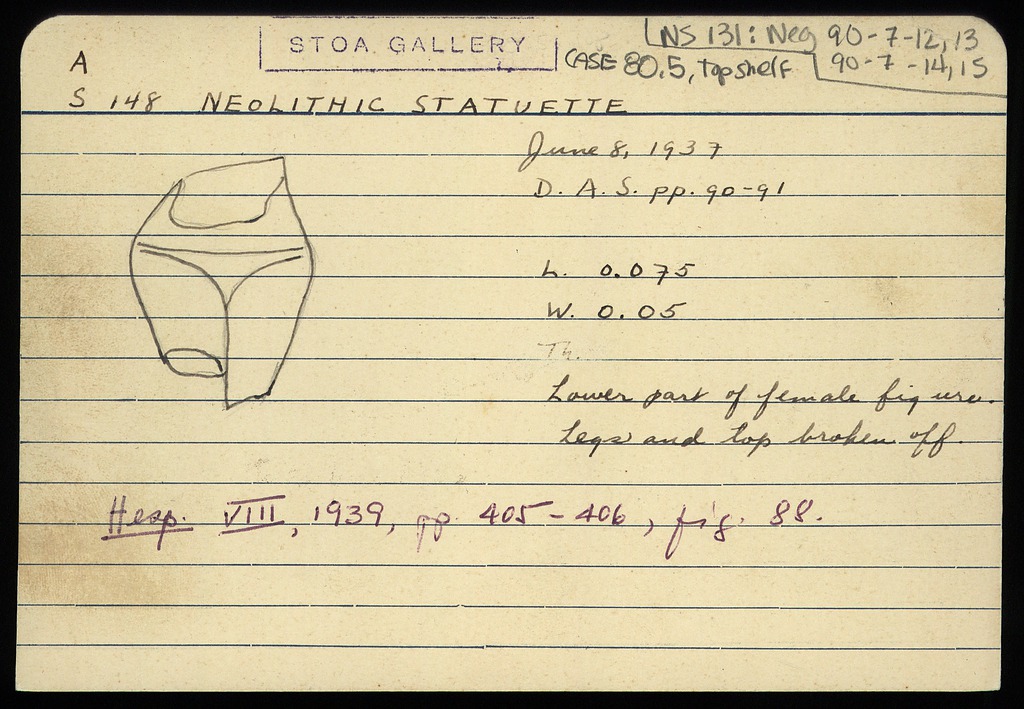 STOA GALLERY
NS 131: Neg 90-7-12, 13
90-7-14, 15
CASE 80.5, top shelf
A
S 148 NEOLITHIC STATUETTE
June 8, 1937
D. A. S. pp. 90-91
L. 0.075
W. 0.05
Th.
Lower part of female figure.
Legs and top broken off.
Hesp. VIII, 1939, pp. 405-406, fig. 88.